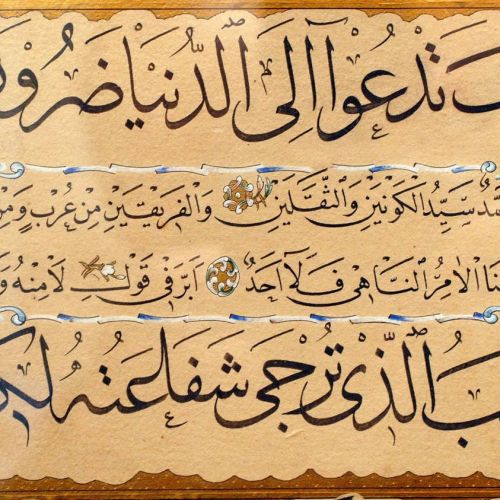 تَدْعُوا اِلَى الدُّنْيَا ضَرُورَ
سَيِّدُ الْكَوْنَيْنِ وَالثَّقَلَيْنِ وَالْفَرِيقَيْنِ مِنْ عُرْبٍ وَمِنْ
الْاٰمِرُ النَّاهِى فَلَا اَحَدٌ اَبَرَّ فِى قَوْلِ لَا مِنْهُ وَ
الَّذِى تُرْجَى شَفَاعَتُهُ